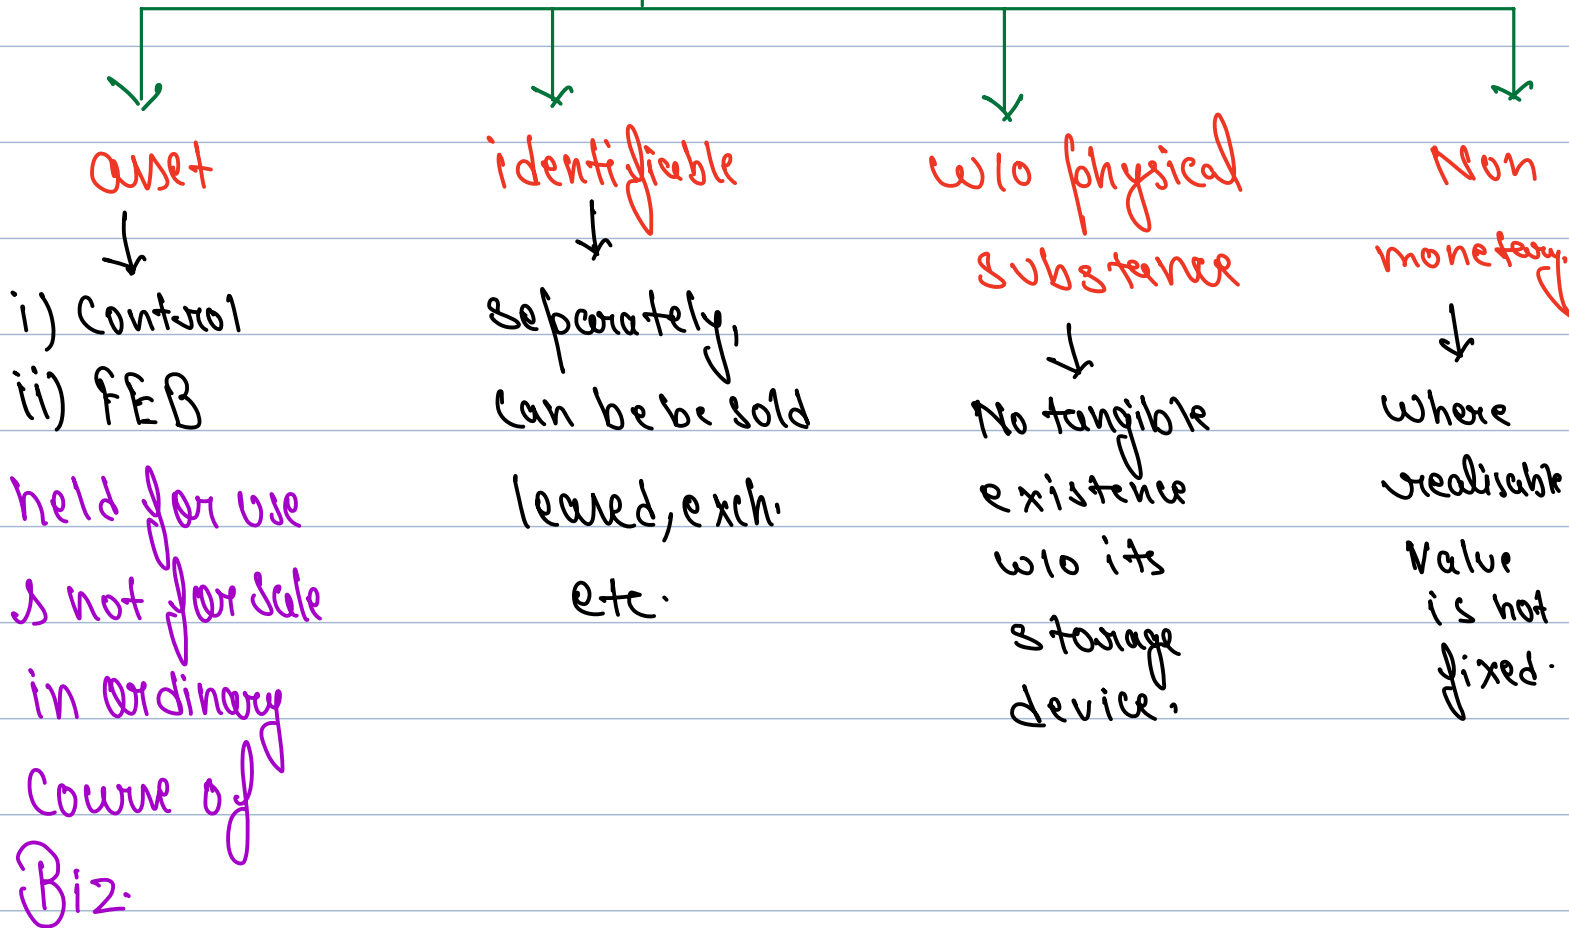 asset
i) Control
ii) FEB
held for use
& not for sale
in ordinary
Course of
Biz.
identifiable
separately,
Can be be sold
leased, exch.
etc.
w/o physical
substance
No tangible
existence
w/o its
storage
device.
Non
monetary.
Where
realisable
Value
is not
fixed.